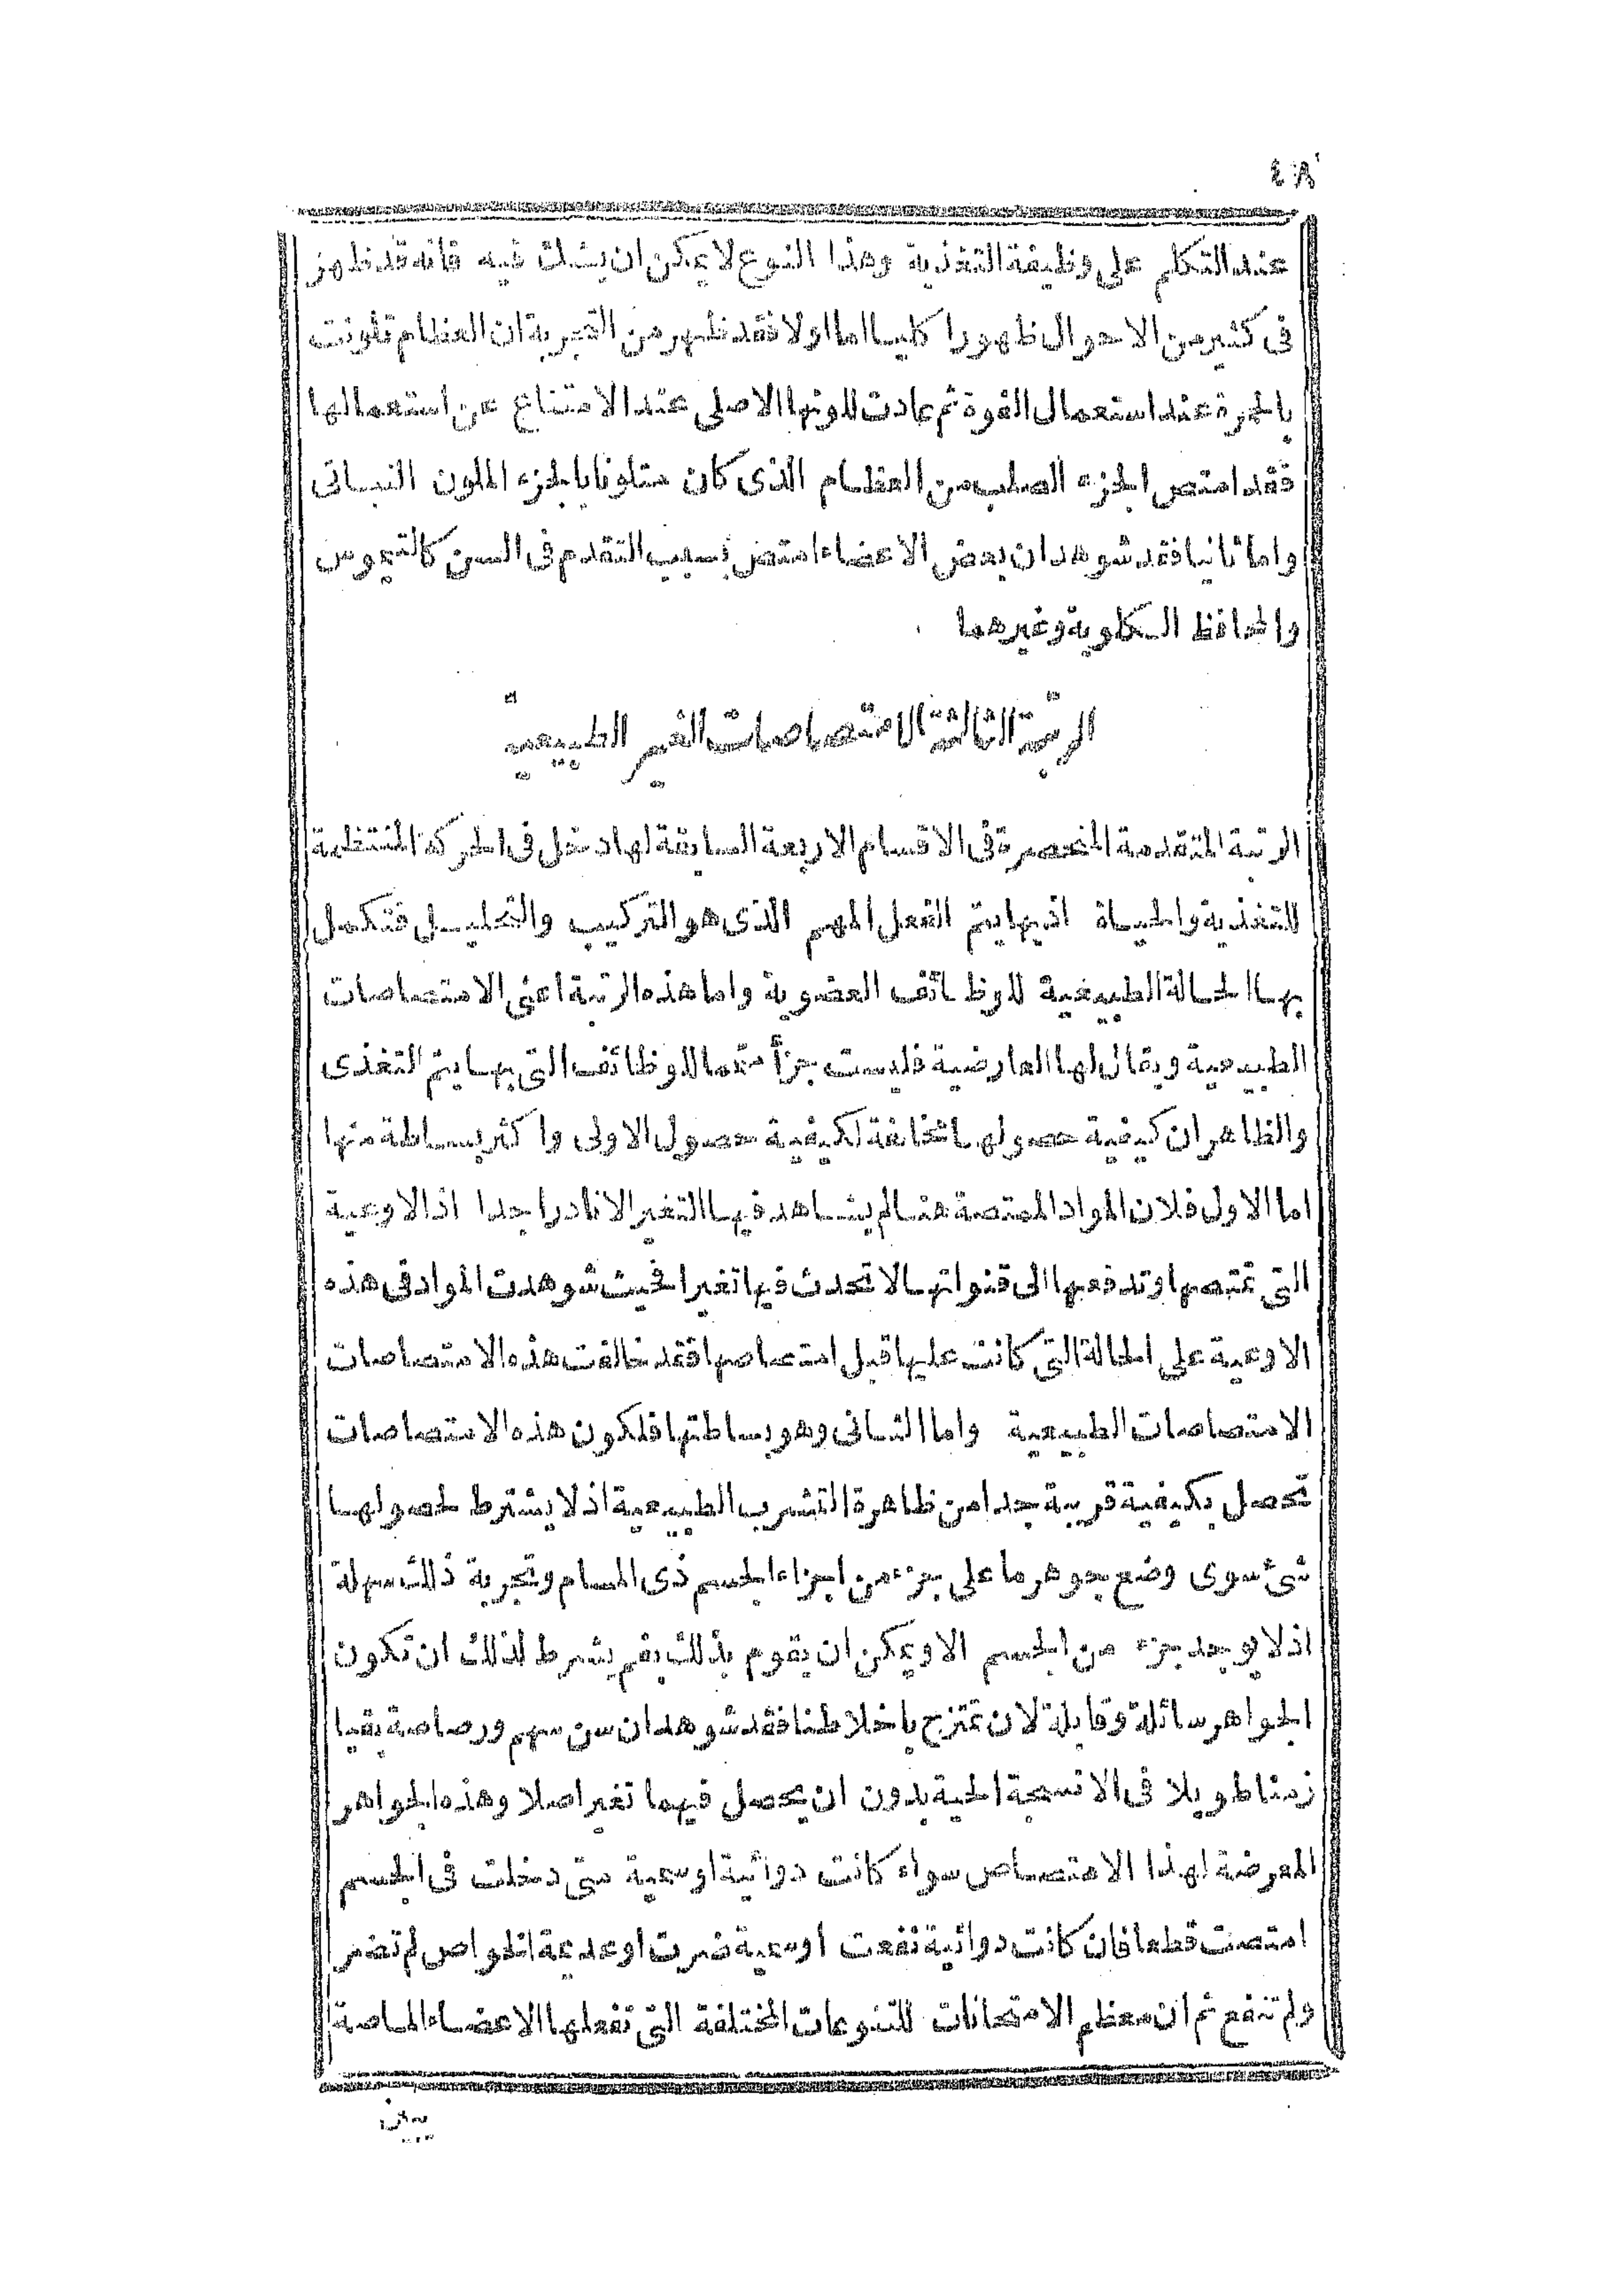 ٤٨
عند التكلم على وظيفة التغذية وهذا النوع لا يمكن ان يشك فيه فانه قد ظهر
فى كثير من الاحوال ظهورا كليا اما اولا فقد ظهر من التجربة ان العظام تلونت
بالحمرة عند استعمال الفوة ثم عادت للونها الاصلى عند الامتناع عن استعمالها
فقد امتص الجزء الصلب من العظام الذى كان متلونا بالجزء الملون النباتى
واما ثانيا فقد شوهد ان بعض الاعضاء امتص بسبب التقدم فى السن كالتيموس
والمحافظ الكلوية وغيرهما
الرتبة الثالثة الامتصاصات الغير الطبيعية
الرتبة المتقدمة المنحصرة فى الاقسام الاربعة السابقة لها دخل فى الحركة المنتظمة
للتغذية والحياة اذ بها يتم الفعل المهم الذى هو التركيب والتحليل فتكمل
بها الحالة الطبيعية للوظائف العضوية واما هذه الرتبة اعنى الامتصاصات
الطبيعية ويقال لها العارضية فليست جزأ متمما للوظائف التى بها يتم التغذى
والظاهر ان كيفية حصولها مخالفة لكيفية حصول الاولى واكثر بساطة منها
اما الاول فلان المواد الممتصة هنا لم يشاهد فيها التغير الا نادرا جدا اذ الاوعية
التى تمتصها وتدفعها الى قنواتها لا تحدث فيها تغيرا فحيث شوهدت المواد فى هذه
الاوعية على الحالة التى كانت عليها قبل امتصاصها فقد خالفت هذه الامتصاصات
الامتصاصات الطبيعية واما الثانى وهو بساطتها فلكون هذه الامتصاصات
تحصل بكيفية قريبة جدا من ظاهرة التشرب الطبيعية اذ لا يشترط لحصولها
شئ سوى وضع جوهر ما على جزء من اجزاء الجسم ذى المسام وتجربة ذلك سهلة
اذ لا يوجد جزء من الجسم الا ويمكن ان يقوم بذلك نعم يشرط لذلك ان تكون
الجواهر سائلة وقابلة لان تمتزج باخلاطنا فقد شوهد ان سن سهم ورصاصة بقيا
زمنا طويلا فى الانسجة الحية بدون ان يحصل فيهما تغير اصلا وهذه الجواهر
المعرضة لهذا الامتصاص سواء كانت دوائية او سمية متى دخلت فى الجسم
امتصت قطعا فان كانت دوائية نفعت او سمية ضرت او عديمة الخواص لم تضر
ولم تنفع ثم ان معظم الامتحانات للتنوعات المختلفة التى تفعلها الاعضاء الماصة